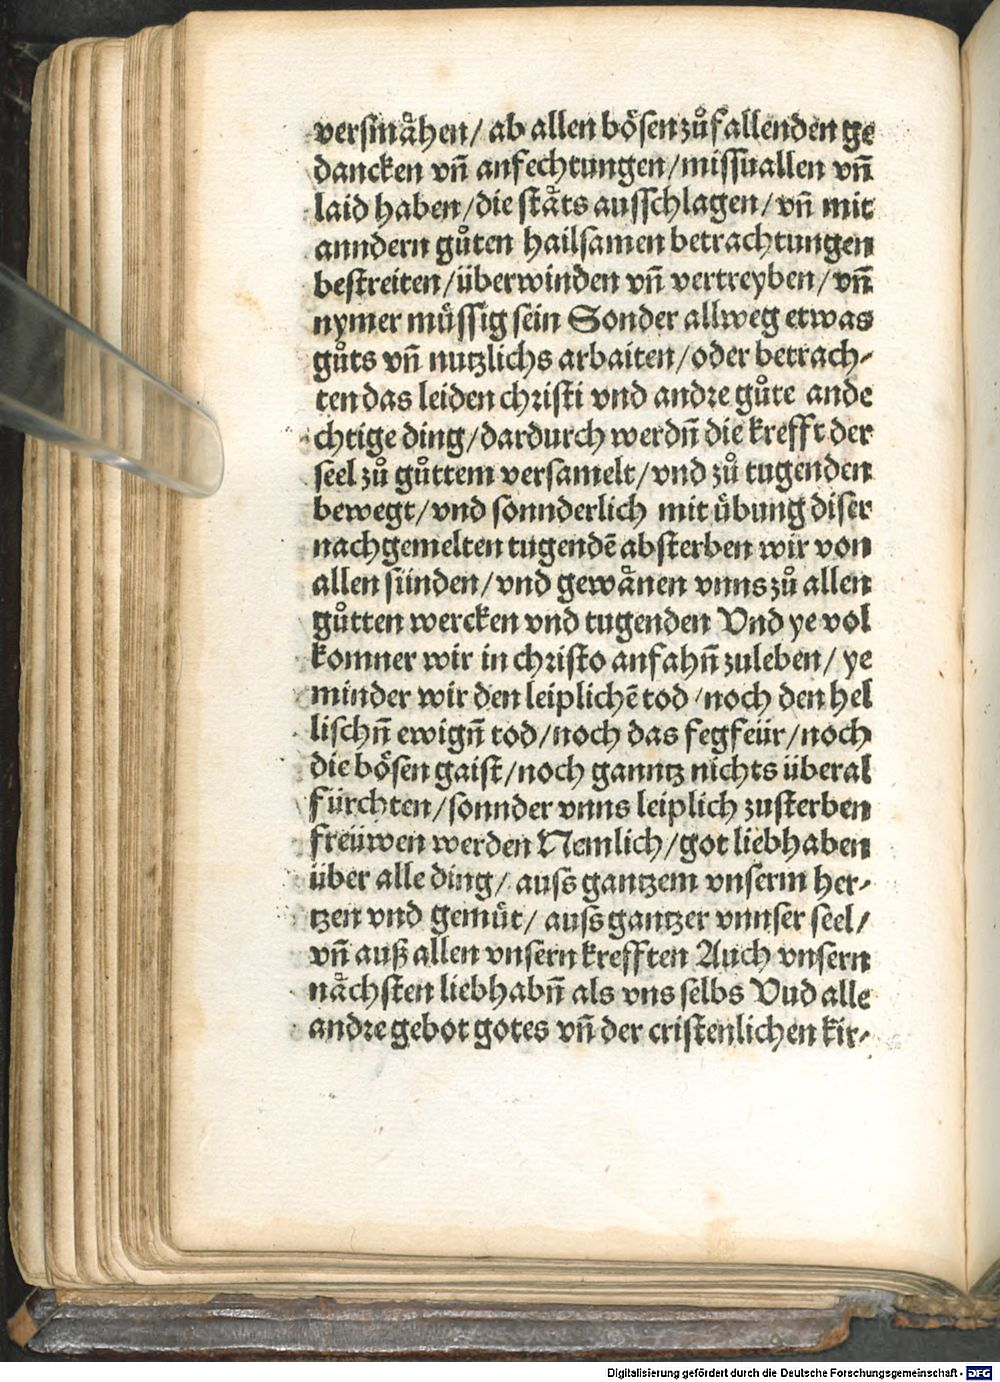 versmåhen/ ab allen bösen zůfallenden ge
dancken vñ anfechtungen/missuallen vñ
laid haben/die ståts ausschlagen/vñ mit
anndern gůten hailsamen betrachtungen
bestreiten/überwinden vñ vertreyben/vñ
nymer müssig sein Sonder allweg etwas
gůts vñ nutzlichs arbaiten/oder betrach-
ten das leiden christi vnd andre gůte ande
chtige ding/dardurch werdñ die krefft der
seel zů gůttem versamelt/vnd zů tugenden
bewegt/vnd sonnderlich mit übung diser
nachgemelten tugendē absterben wir von
allen sünden/vnd gewånen vnns zů allen
gůtten wercken vnd tugenden Vnd ye vol
komner wir in christo anfahñ zuleben/ ye
minder wir den leiplichē tod/noch den hel
lischñ ewigñ tod/noch das fegfeür/noch
die bösen gaist/noch ganntz nichts überal
fürchten/sonnder vnns leiplich zusterben
freüwen werden Nemlich/got liebhaben
über alle ding/ auss gantzem vnserm her-
tzen vnd gemüt/ auss gantzer vnnser seel/
vñ auß allen vnsern krefften Auch vnsern
nåchsten liebhabñ als vns selbs Vud alle
andre gebot gotes vñ der cristenlichen kir-
Digitalisierung gefördert durch die Deutsche Forschungsgemeinschaft - DFG